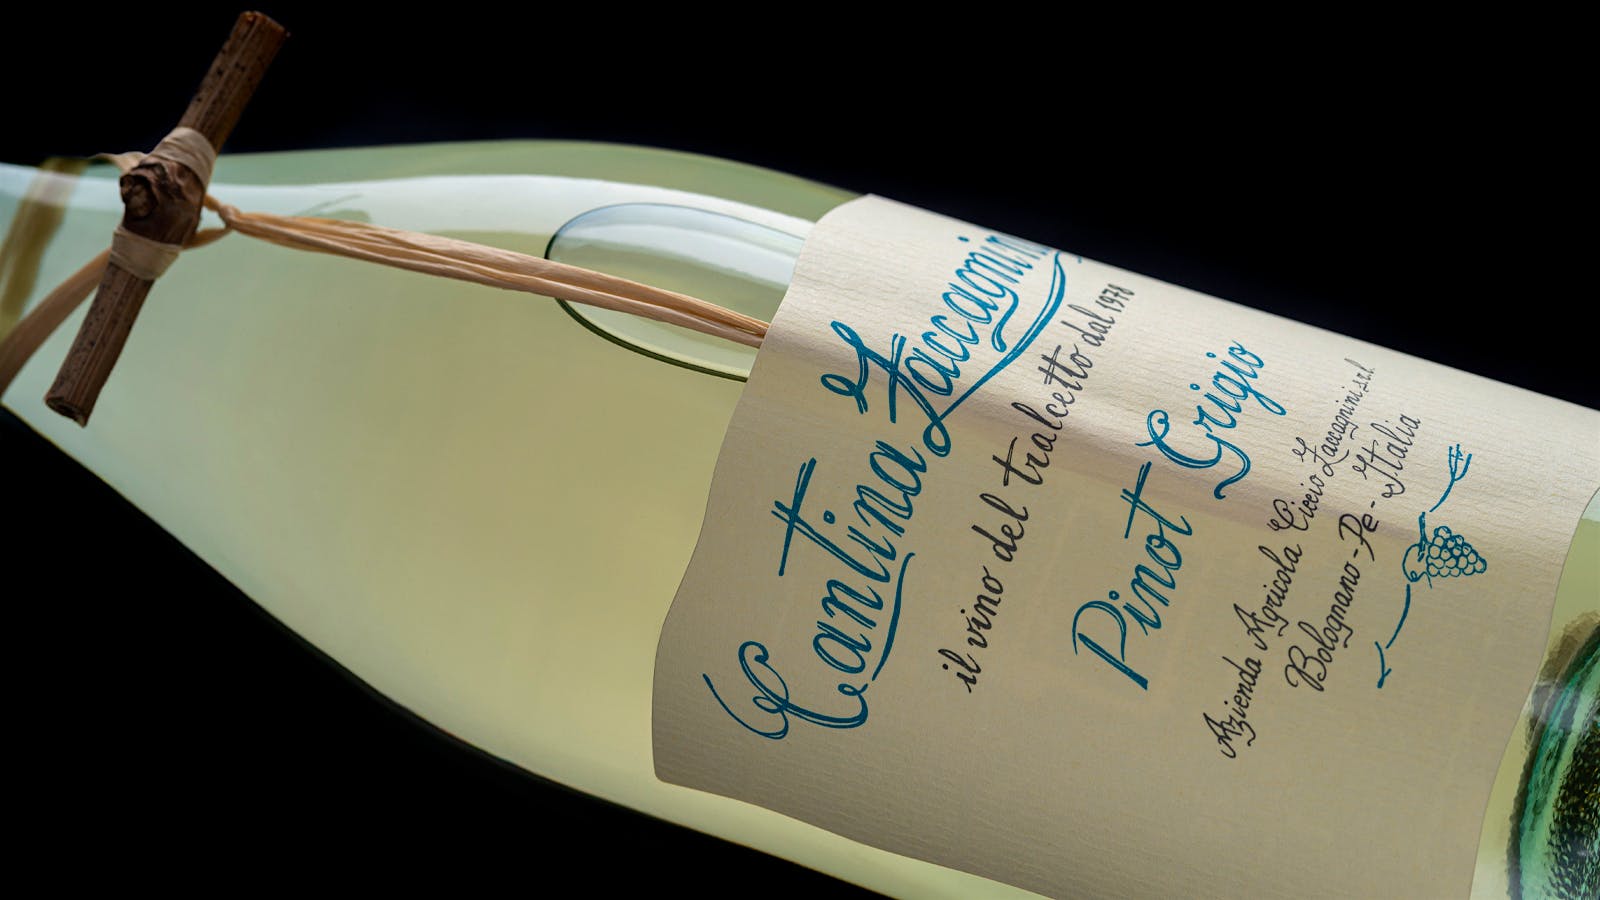 Cantina Zaccagnini
il vino del tralcetto dal 1978
Pinot Grigio
Azienda Agricola Ciccio Zaccagnini s.r.l.
Bolognano - Pe - Italia